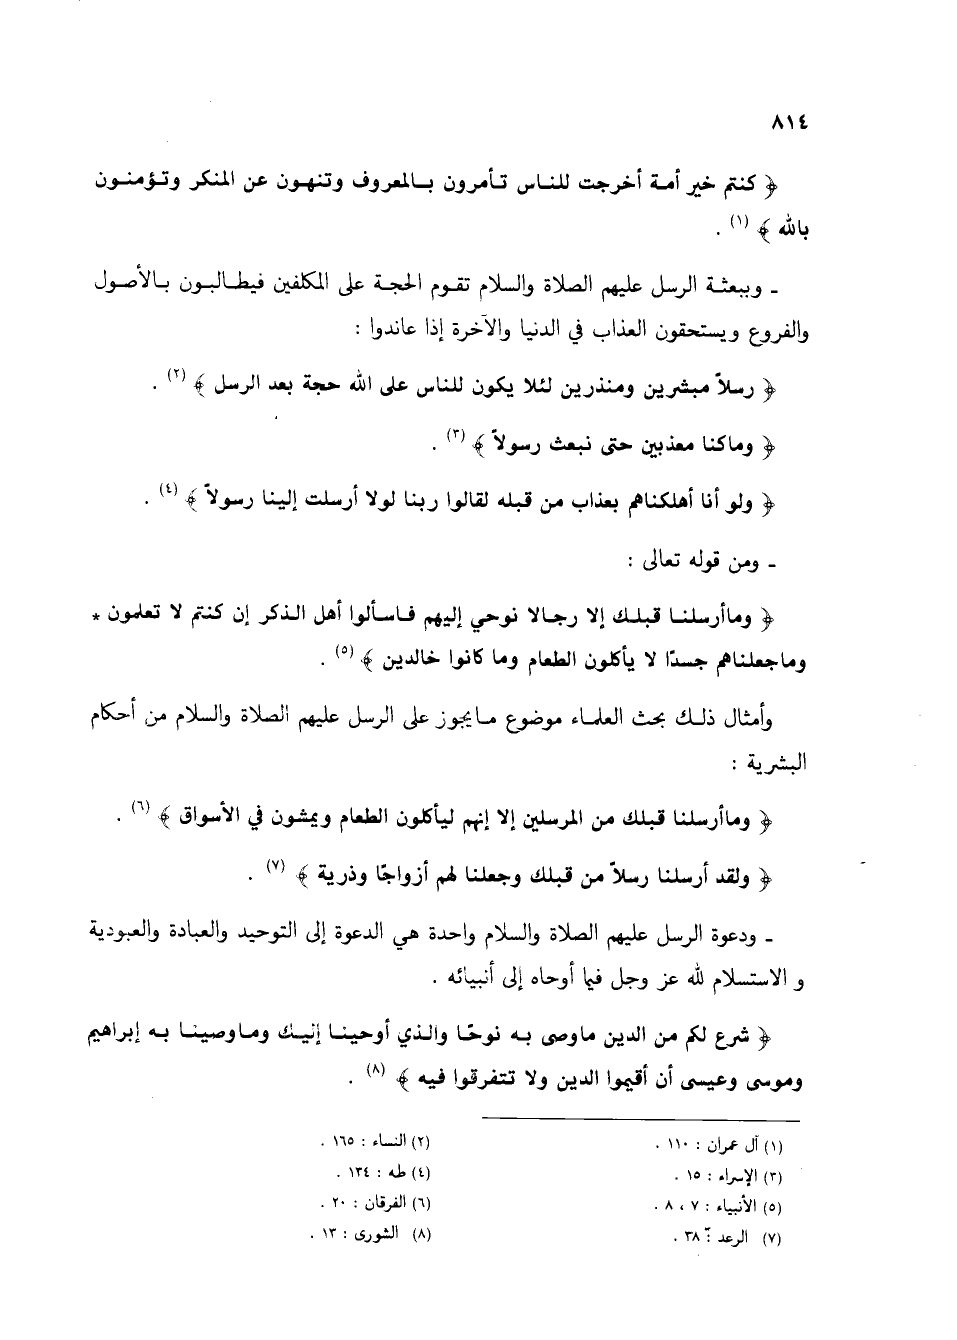 ٨١٤
﴿ كنتم خير أمة أخرجت للناس تأمرون بالمعروف وتنهون عن المنكر وتؤمنون
بالله ﴾ (١) .
ـ وببعثة الرسل عليهم الصلاة والسلام تقوم الحجة على المكلفين فيطالبون بالأصول
والفروع ويستحقون العذاب في الدنيا والآخرة إذا عاندوا :
﴿ رسلاً مبشرين ومنذرين لئلا يكون للناس على الله حجة بعد الرسل ﴾ (٢) .
﴿ وماكنا معذبين حتى نبعث رسولاً ﴾ (٣) .
﴿ ولو أنا أهلكناهم بعذاب من قبله لقالوا ربنا لولا أرسلت إلينا رسولاً ﴾ (٤) .
ـ ومن قوله تعالى :
﴿ وماأرسلنا قبلك إلا رجالا نوحي إليهم فاسألوا أهل الذكر إن كنتم لا تعلمون *
وماجعلناهم جسدًا لا يأكلون الطعام وما كانوا خالدين ﴾ (٥) .
وأمثال ذلك بحث العلماء موضوع مايجوز على الرسل عليهم الصلاة والسلام من أحكام
البشرية :
﴿ وماأرسلنا قبلك من المرسلين إلا إنهم ليأكلون الطعام ويمشون في الأسواق ﴾ (٦) .
﴿ ولقد أرسلنا رسلاً من قبلك وجعلنا لهم أزواجًا وذرية ﴾ (٧) .
ـ ودعوة الرسل عليهم الصلاة والسلام واحدة هي الدعوة إلى التوحيد والعبادة والعبودية
و الاستسلام لله عز وجل فيما أوحاه إلى أنبيائه .
﴿ شرع لكم من الدين ماوصى به نوحًا والذي أوحينا إليك وماوصينا به إبراهيم
وموسى وعيسى أن أقيموا الدين ولا تتفرقوا فيه ﴾ (٨) .
(١) آل عمران : ١١٠ .
(٢) النساء : ١٦٥ .
(٣) الإسراء : ١٥ .
(٤) طه : ١٣٤ .
(٥) الأنبياء : ٧ ، ٨ .
(٦) الفرقان : ٢٠ .
(٧) الرعد : ٣٨ .
(٨) الشورى : ١٣ .